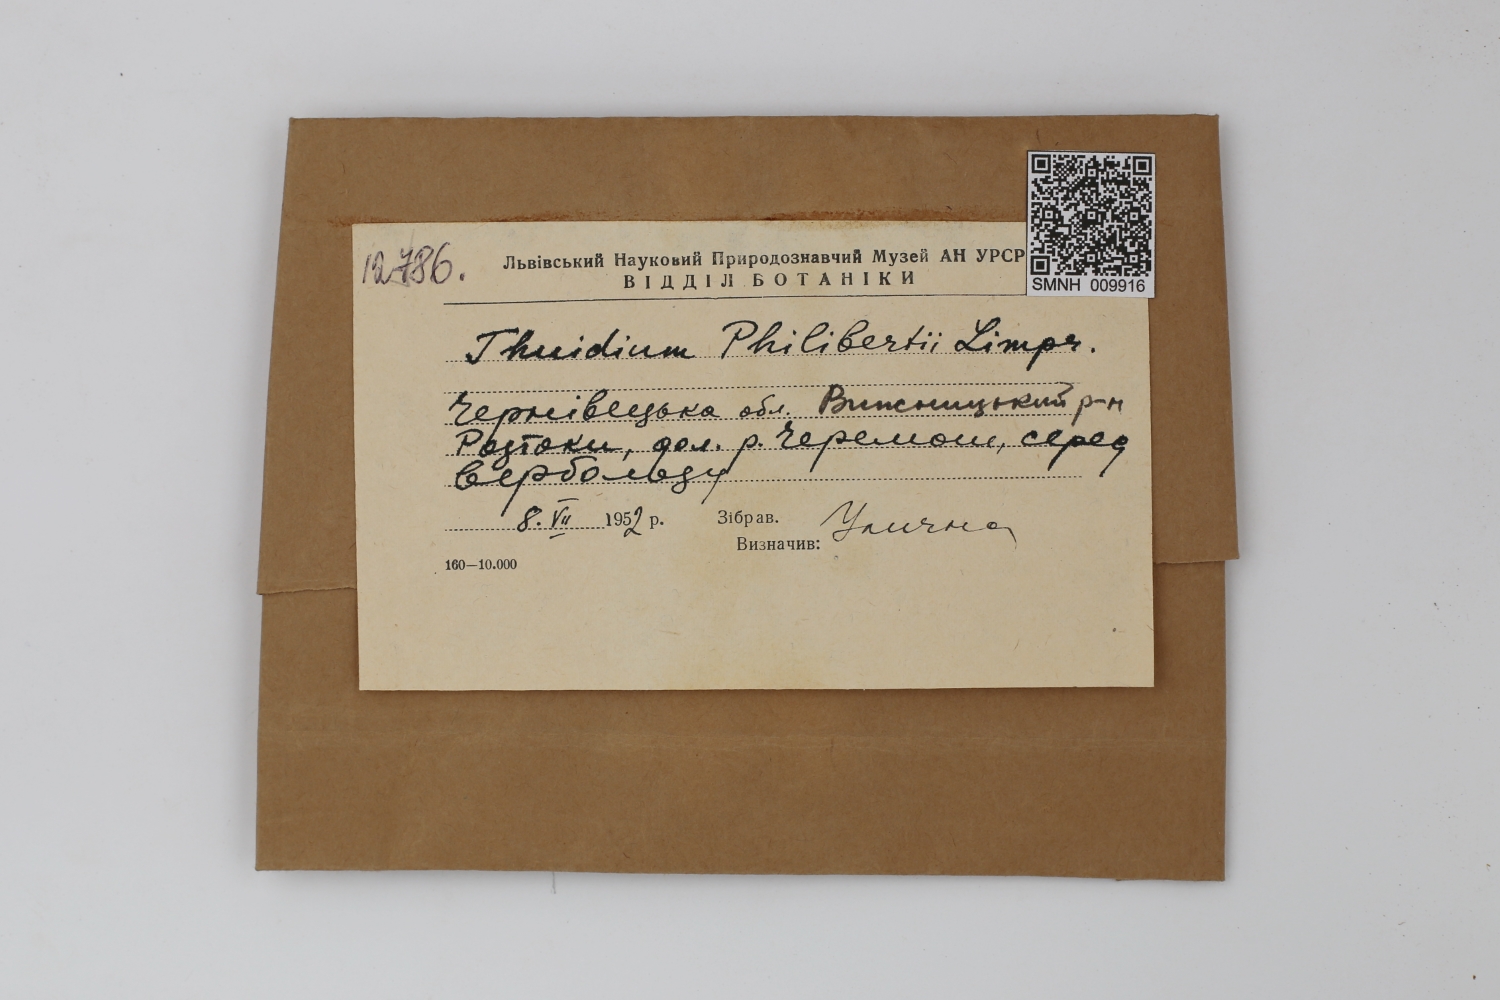 12786.
Львівський Науковий Природознавчий Музей АН УРСР
ВІДДІЛ БОТАНІКИ
SMNH 009916
Thuidium Philibertii Limpr.
Чернівецька обл. Вижницький р-н
Розтоки, дол. р. Черемош, серед
вербользу
8. VII 1952 р. Зібрав. Улична
Визначив:
160—10.000